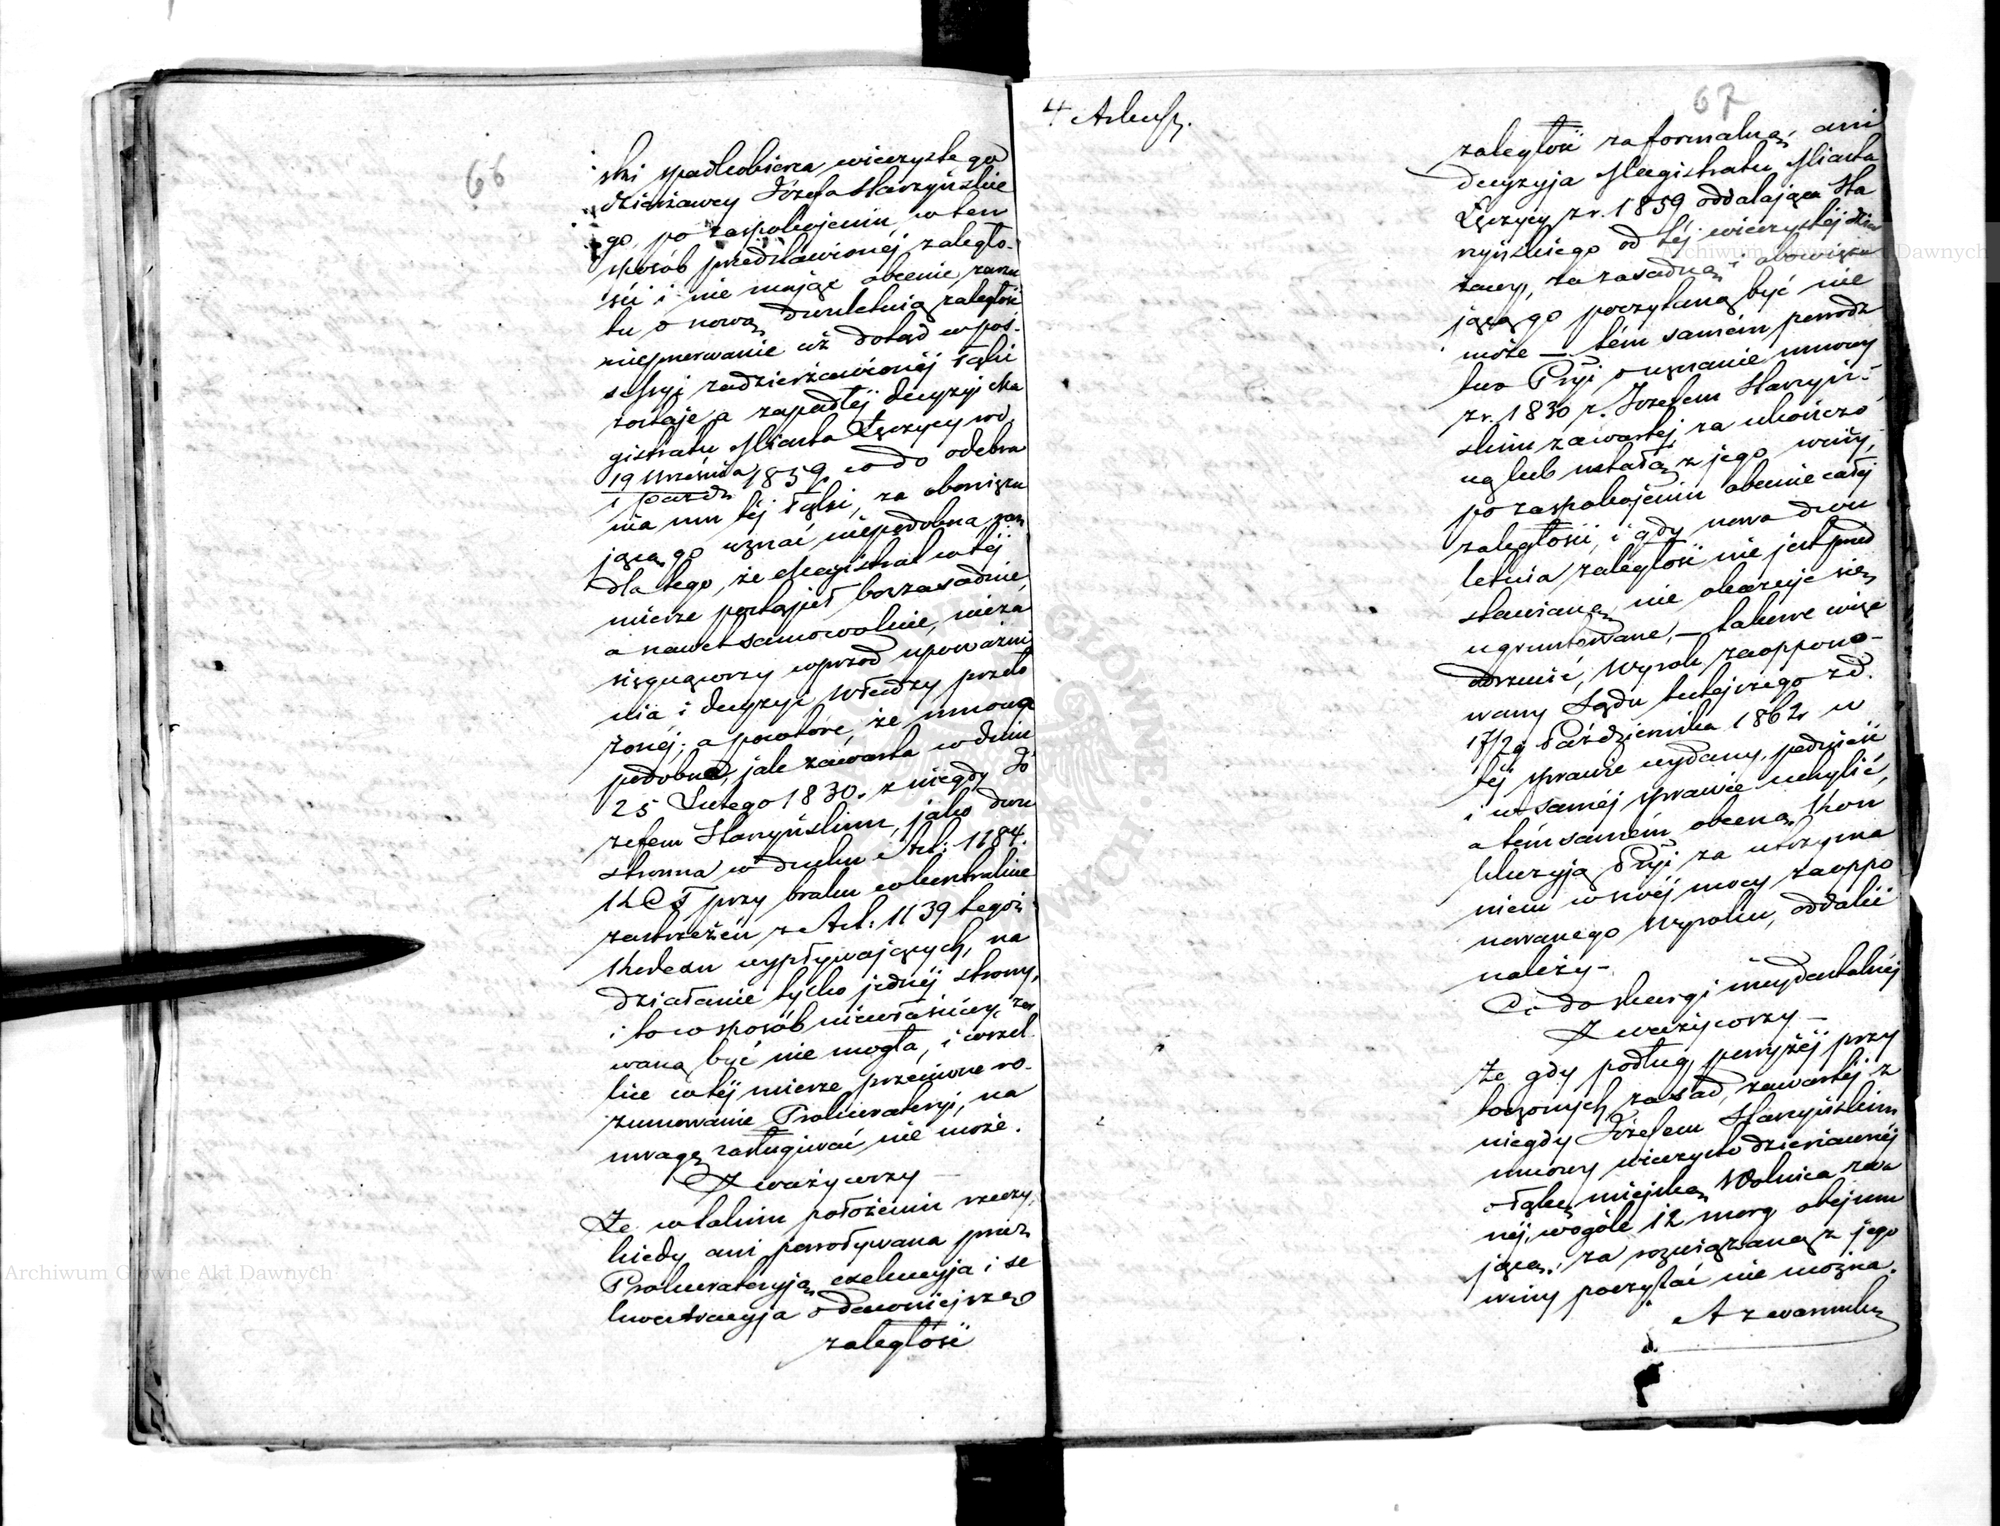 66
ski spadkobierca wieczystego
dzierżawcy Józefa Starzyńskie
go, po zaspokojeniu, w ten
sposób przedstawionéj zaległo-
ści i nie mając obecnie, zarzu
tu o nową dwuletnią zaległość
nieprzerwanie aż dotąd w pos-
sessyi zadzierżawionéj łąki
zostaje a zapadłéj decyzyi Ma
gistratu Miasta Łęczycy w d.
19 Września / 1 Paźdz. 1859. co do odebra
nia mu téj łąki, za obowiązu
jącą go uznać niepodobna, raz
dla tego, że Magistrat w téj
mierze postąpił bezzasadnie,
a nawet samowolnie, nieza
sięgnąwszy wprzód upoważnie
nia i decyzyi Władzy przeło
żonéj; a powtóre, że umowa
podobna, jak zawarta w dniu
25 Lutego 1830. z niegdy Jó
zefem Starzyńskim, jako dwu
stronna w duchu Art: 1184.
K C F przy braku w kontrakcie
zastrzeżeń z Art: 1139 tegoż
Kodexu wypływających, na
działanie tylko jednéj strony,
i to w sposób niewłaściwy, zer
waną być nie mogła, i wszel
kie w téj mierze przeciwne ro-
zumowanie Prokuratoryi, na
uwagę zasługiwać nie może.
Zważywszy —
Że w takim położeniu rzeczy,
kiedy ani powoływana przez
Prokuratoryją exekucyja i se
kwestracyja o dawniejszą
zaległość
4 Arkusz.
67
zaległość za formalną, ani
decyzyja Magistratu Miasta
Łęczycy z r. 1859 oddalająca Sta
rzyńskiego od téj wieczystéj dzier
żawy, za zasadną i obowiązu
jącą go poczytaną być nie
może — tém samém powódz
two Pryi o uznanie umowy
z r. 1830 r. Józefem Starzyń-
skim zawartéj, za ukończo
ną lub ustałą z jego winy,
po zaspokojeniu obecnie całéj
zaległości, i gdy nowa dwu
letnia zaległość nie jest przed
stawianą, nie okazuje się
ugruntowane, — takowe więc
odrzucić, Wyrok zaoppono-
wany Sądu tutejszego z d.
17/29 Października 1862 w
téj sprawie wydany, podnieść
i w saméj sprawie uchylić,
a tém samém obecną Kon
kluzyją Pryi za utrzyma
niem w swéj mocy zaoppo
nowanego Wyroku, oddalić
należy —
Co do skargi incydentalnéj
Zważywszy —
Że gdy podług powyżéj przy
toczonych zasad, zawartéj z
niegdy Józefem Starzyńskim
umowy wieczysto dzierżawnéj
o łąkę miejską Wolnica zwa
néj, wogóle 12 morg obejmu
jącą, za rozwiązaną z jego
winy poczytać nie można.
A z warunku
Archiwum Główne Akt Dawnych
Archiwum Główne Akt Dawnych